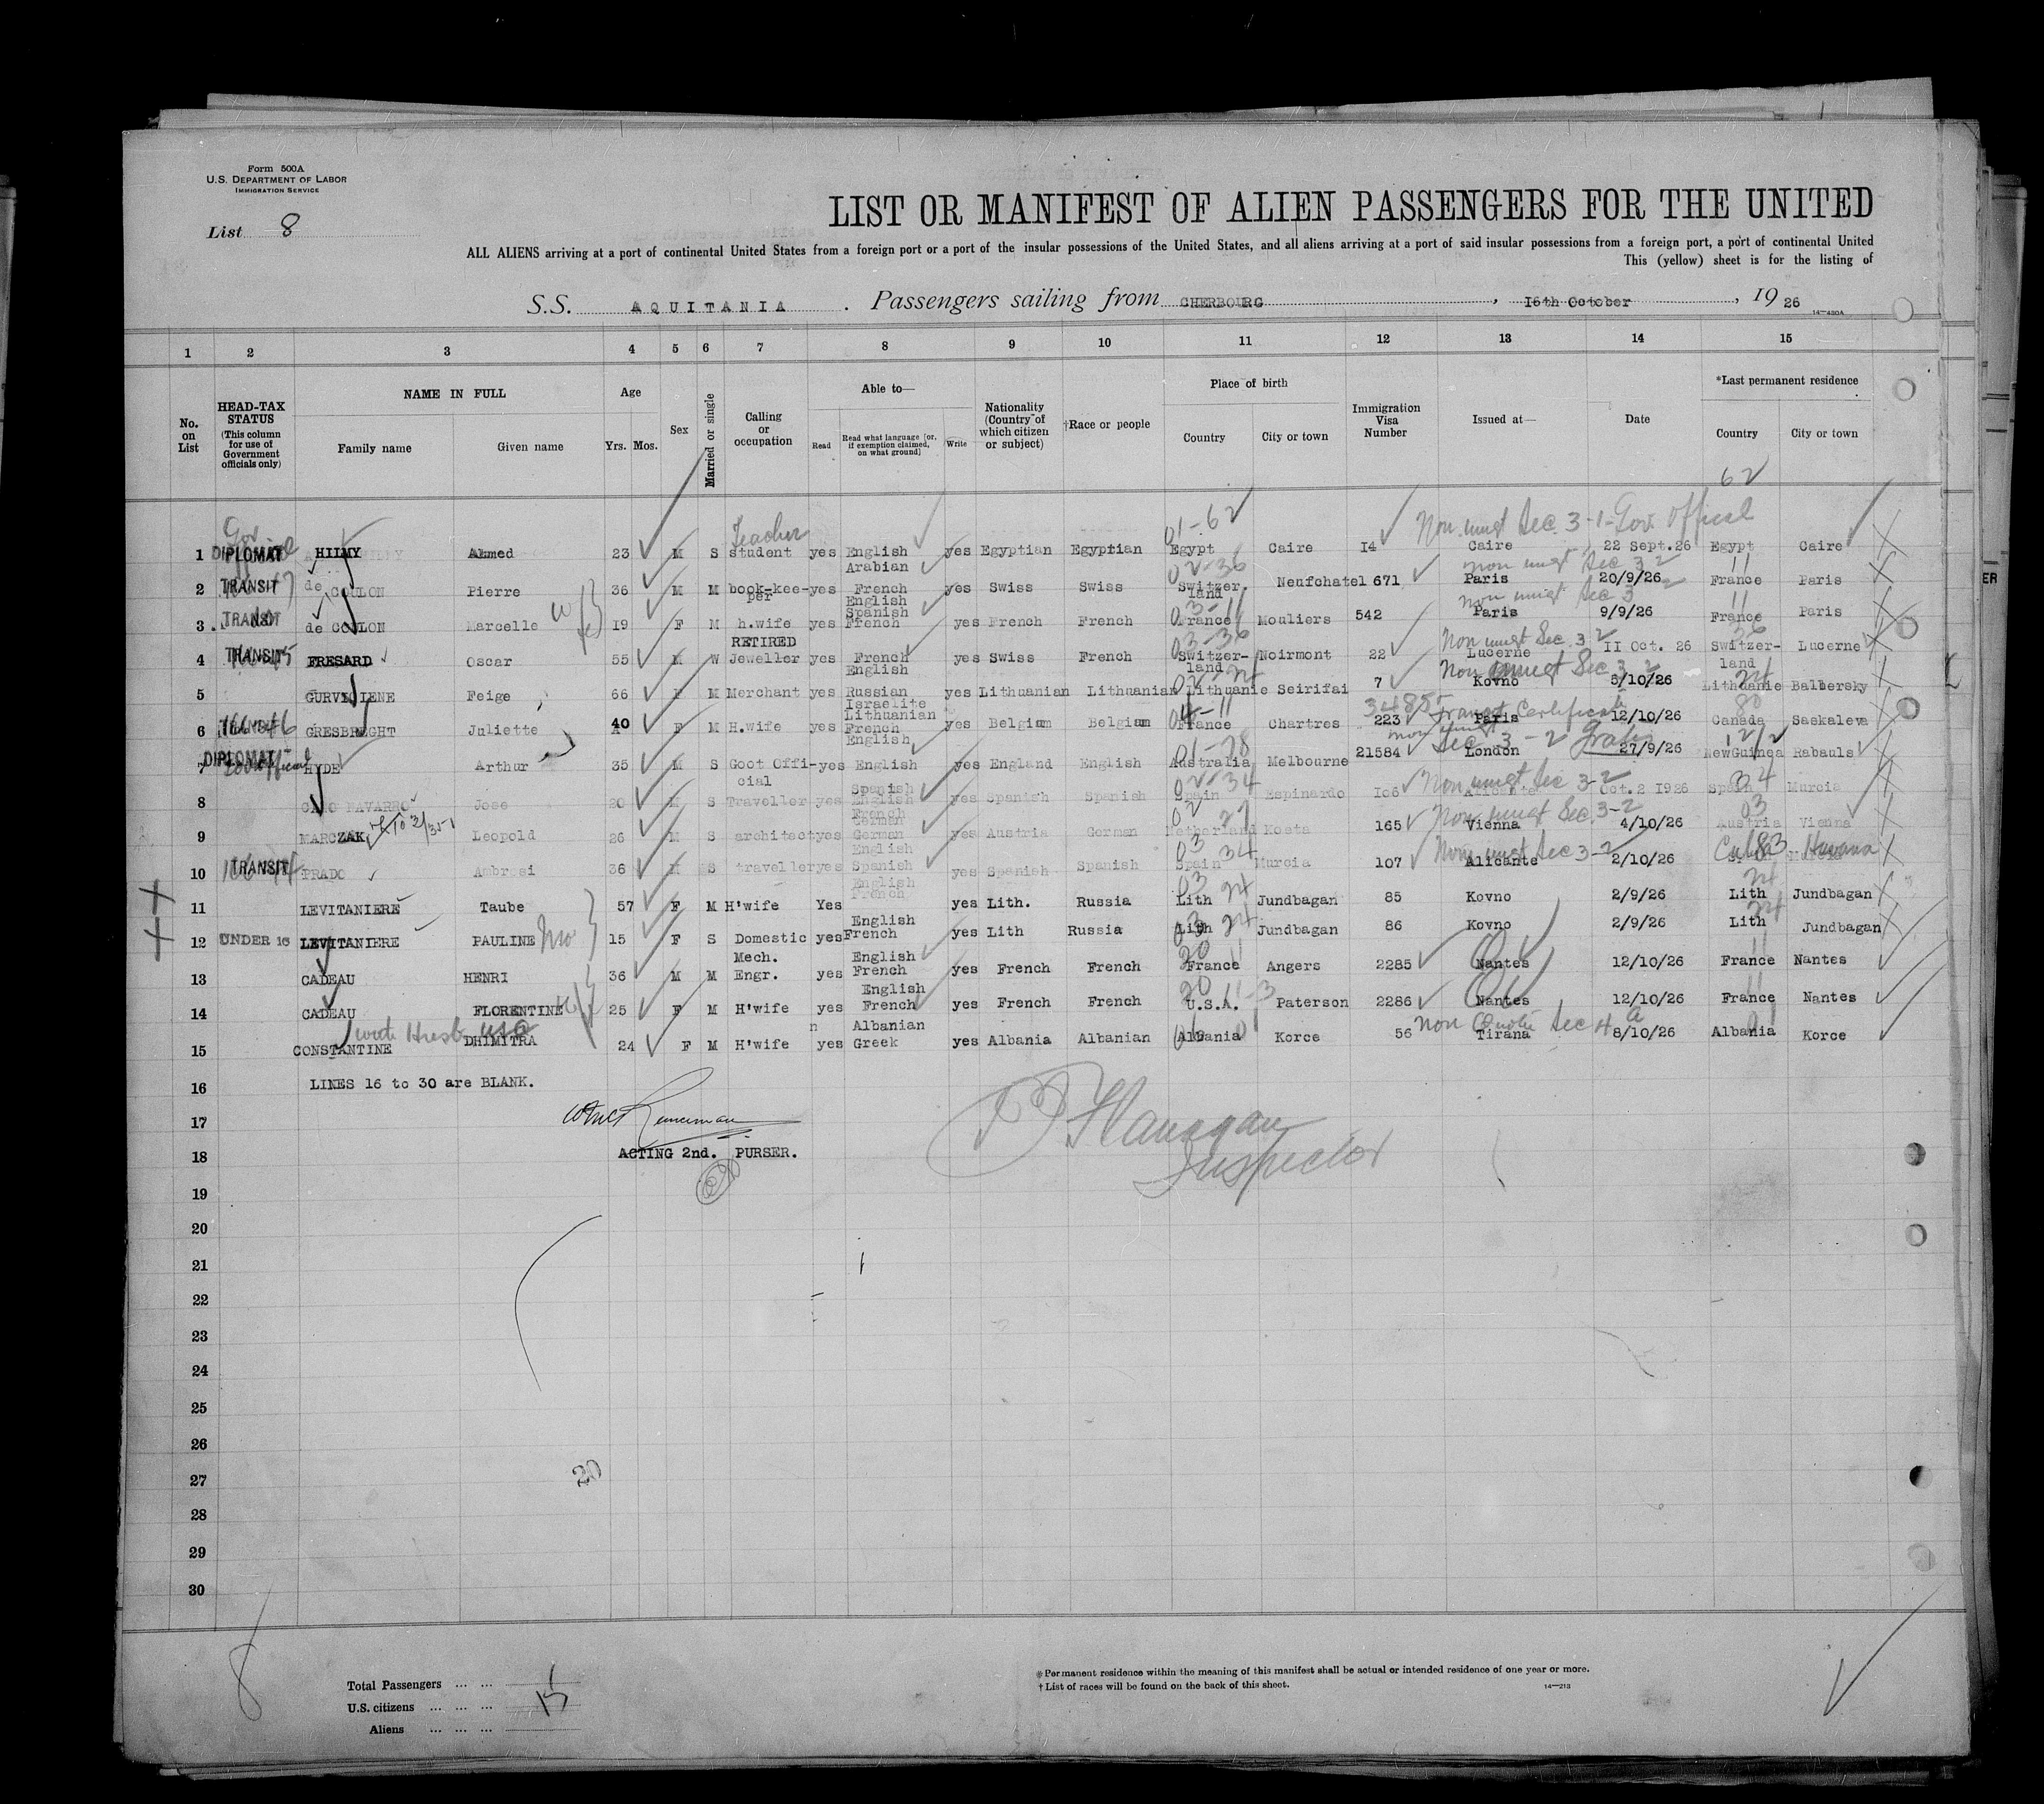 Form 500A
U.S. DEPARTMENT OF LABOR
IMMIGRATION SERVICE
List 8
LIST OR MANIFEST OF ALIEN PASSENGERS FOR THE UNITED
ALL ALIENS arriving at a port of continental United States from a foreign port or a port of the insular possessions of the United States, and all aliens arriving at a port of said insular possessions from a foreign port, a port of continental United
This (yellow) sheet is for the listing of
S.S. AQUITANIA. Passengers sailing from CHERBOURG, 16th October, 19 26
14-430A
1 2 3 4 5 6 7 8 9 10 11 12 13 14 15
No. on List
HEAD-TAX STATUS (This column for use of Government officials only)
NAME IN FULL
Family name Given name
Age
Yrs. Mos.
Sex
Married or single
Calling or occupation
Able to—
Read Read what language [or, if exemption claimed, on what ground] Write
Nationality (Country of which citizen or subject)
†Race or people
Place of birth
Country City or town
Immigration Visa Number
Issued at—
Date
*Last permanent residence
Country City or town
62
Teacher 01-62 Non immgt Sec 3-1-Gov Offical
1 DIPLOMAT HILMY Ahmed 23 M S student yes English Arabian yes Egyptian Egyptian Egypt Caire 14 Caire 22 Sept.26 Egypt Caire
02-36 non immgt Sec 3 2 11
2 TRANSIT de COULON Pierre 36 M M book-kee-per yes French English Spanish yes Swiss Swiss Switzer.land Neufchatel 671 Paris 20/9/26 France Paris
03-11 non immgt Sec 3 2 11
3 TRANSIT de COULON Marcelle 19 F M h.wife yes French yes French French France Mouliers 542 Paris 9/9/26 France Paris
03-36 Non immgt Sec 3 2 36
4 TRANSIT FRESARD Oscar 55 M W RETIRED Jeweller yes French English yes Swiss French Switzer-land Noirmont 22 Lucerne 11 Oct. 26 Switzer-land Lucerne
Non immgt Sec 3 2 24
5 GURVICIENE Feige 66 F M Merchant yes Russian Israelite Lithuanian yes Lithuanian Lithuanian Lithuanie Seirifai 7 Kovno 5/10/26 Lithuanie Balbersky
04-11 34855 Transit Certificate 80
6 TRANSIT GRESBREGHT Juliette 40 F M H.wife yes French English yes Belgian Belgian France Chartres 223 Paris 12/10/26 Canada Saskaleva
01-28 non immgt Sec 3-2 Gratis
7 DIPLOMAT HYDE Arthur 35 M S Goot Offi-cial yes English yes England English Australia Melbourne 21584 London 27/9/26 NewGuinea Rabauls
02-34 Non immgt Sec 3-2 34
8 CANO NAVARRO Jose 20 M S Traveller yes Spanish English French yes Spanish Spanish Spain Espinardo 106 Alicante Oct.2 1926 Spain Murcia
02 27 Non immgt Sec 3-2 03
9 MARCZAK Leopold 26 M S architect yes German German English yes Austria German Netherland Kosta 165 Vienna 4/10/26 Austria Vienna
03 34 Non immgt Sec 3-2 Cuba 83 Havana
10 TRANSIT PRADO Ambrosi 36 M S traveller yes Spanish English French yes Spanish Spanish Spain Murcia 107 Alicante 2/10/26
03 24 24
11 LEVITANIERE Taube 57 F M H'wife Yes yes Lith. Russia Lith Jundbagan 85 Kovno 2/9/26 Lith Jundbagan
03 24 24
12 UNDER 16 LEVITANIERE PAULINE 15 F S Domestic yes English French yes Lith Russia Lith Jundbagan 86 Kovno 2/9/26 Lith Jundbagan
20 11 11
13 CADEAU HENRI 36 M M Mech. Engr. yes English French yes French French France Angers 2285 Nantes 12/10/26 France Nantes
20 11-3 11
14 CADEAU FLORENTINE 25 F M H'wife yes English French yes French French U.S.A. Paterson 2286 Nantes 12/10/26 France Nantes
non Quota Sec 4 a
15 CONSTANTINE DHIMITRA 24 F M H'wife yes Albanian Greek yes Albania Albanian Albania Korce 56 Tirana 8/10/26 Albania Korce
16 LINES 16 to 30 are BLANK.
17
18 ACTING 2nd. PURSER.
Flanagan
Inspector
19
20
21
22
23
24
25
26
27 20
28
29
30
8
Total Passengers ... ...
U.S. citizens ... ... ... 15
Aliens ... ... ...
*Permanent residence within the meaning of this manifest shall be actual or intended residence of one year or more.
†List of races will be found on the back of this sheet.
14-213